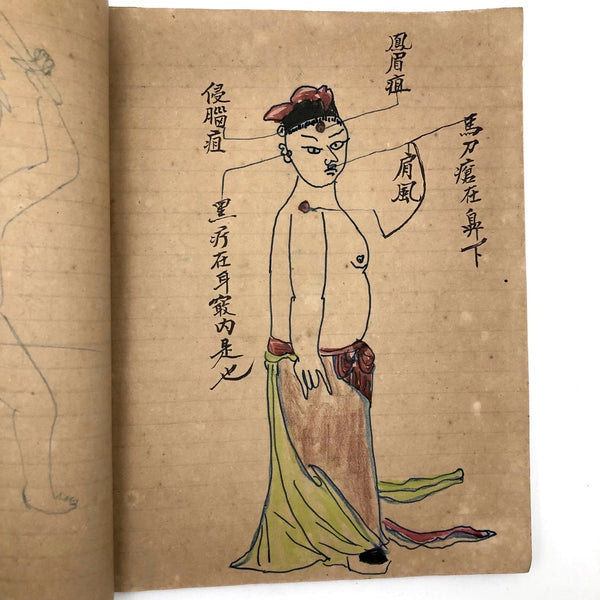 鳳眉疽
馬刀瘡在鼻下
肩風
侵腦疽
黑疔在耳竅內是也